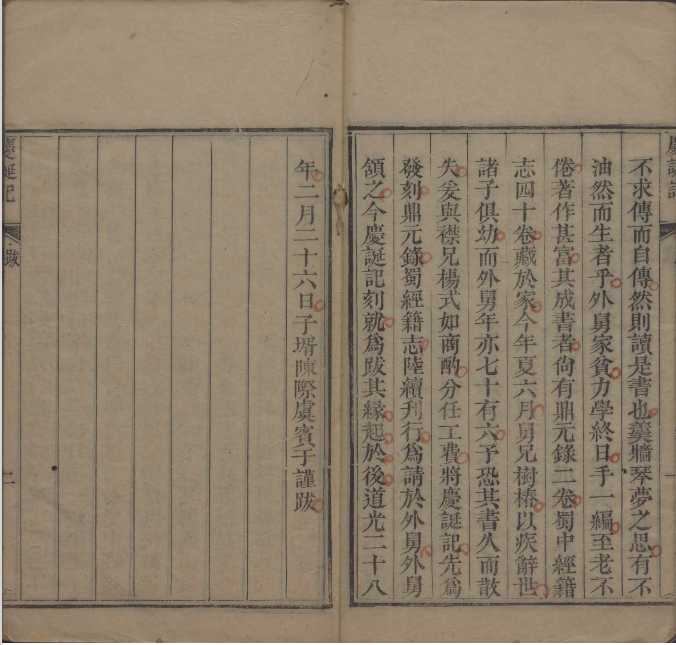 不求傳而自傳然則讀是書也羹牆琴夢之思有不
油然而生者乎外舅家貧力學終日手一編至老不
倦著作甚富其成書者尙有鼎元錄二卷蜀中經籍
志四十卷藏於家今年夏六月舅兄樹椿以疾辭世
諸子俱幼而外舅年亦七十有六予恐其書久而散
失爰與襟兄楊式如商酌分任工費將慶誕記先爲
發刻鼎元錄蜀經籍志陸續刊行爲請於外舅外舅
頷之今慶誕記刻就爲跋其緣起於後道光二十八
年二月二十六日子壻陳際虞賓于謹跋
慶誕記
跋
二